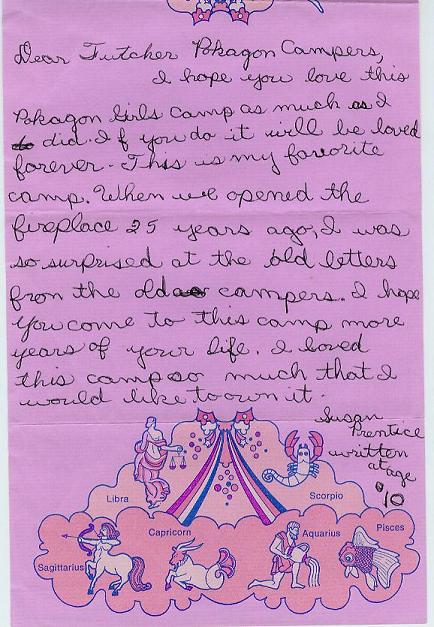 Dear Futcher Pokagon Campers,
I hope you love this
Pokagon Girls Camp as much as I
did. If you do it will be loved
forever. This is my favorite
camp. When we opened the
fireplace 25 years ago, I was
so surprised at the old letters
from the old campers. I hope
you come to this camp more
years of your life. I loved
this camp so much that I
would like to own it.
Susan
Prentice
written
at age
10
Libra
Scorpio
Capricorn
Aquarius
Pisces
Sagittarius